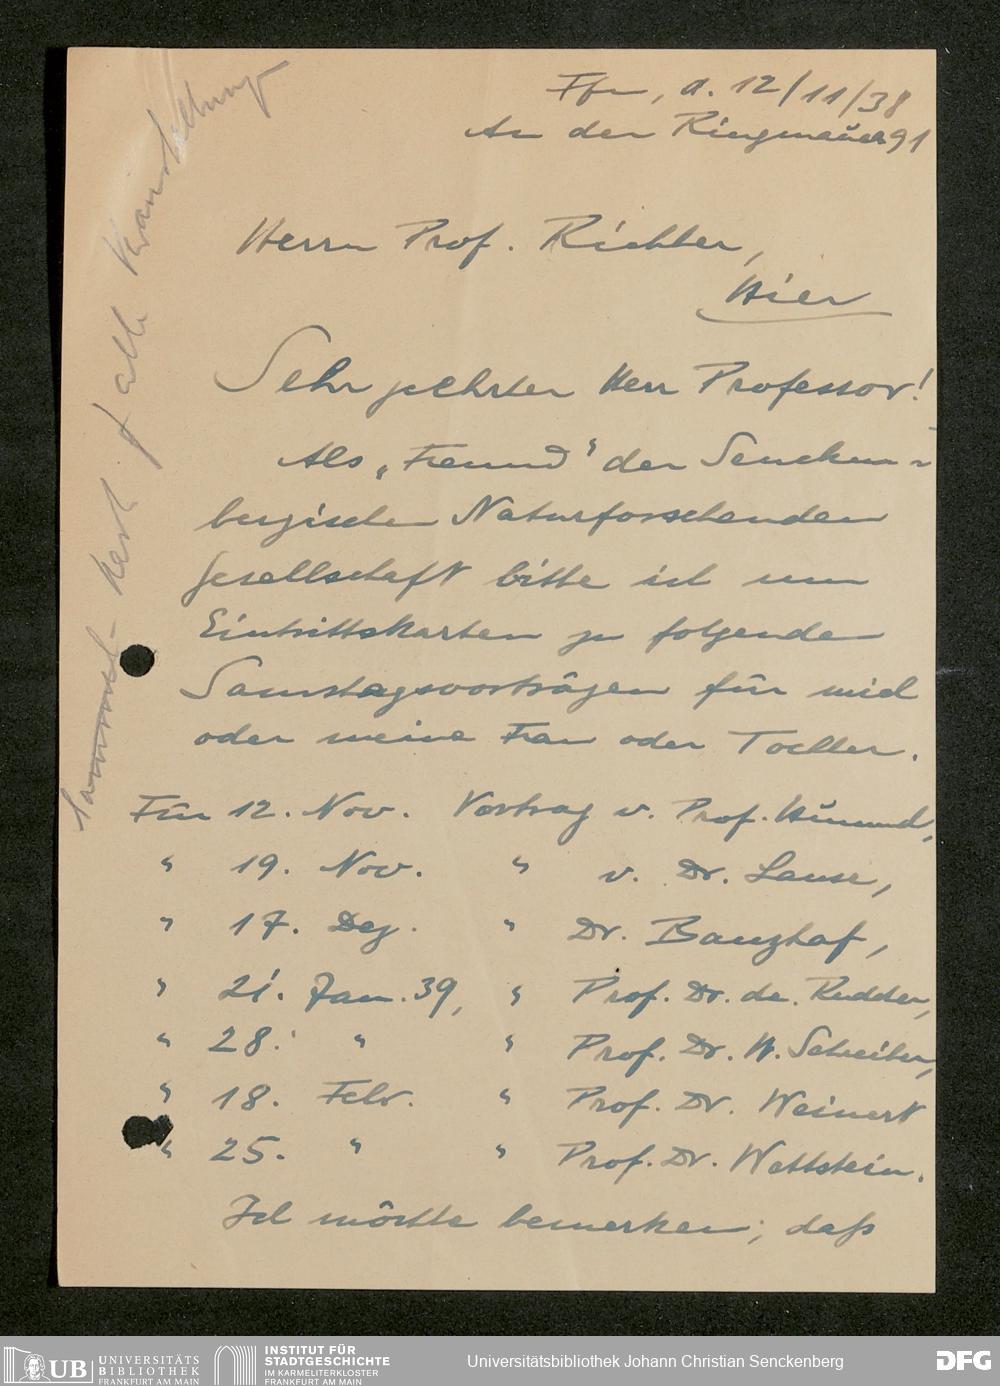 Ffm, d. 12/11/38
An der Ringmauer 91
Herrn Prof. Richter,
Hier
Sehr geehrter Herr Professor!
Als „Freund" der Sencken-
bergischen Naturforschenden
Gesellschaft bitte ich um
Eintrittskarten zu folgenden
Samstagsvorträgen für mich
oder meine Frau oder Tochter.
Für 12. Nov. Vortrag v. Prof.
" 19. Nov. " v. Dr. Lause,
" 17. Dez. " Dr. Banzhaf,
" 21. Jan. 39, " Prof. Dr. de Rudder,
" 28. " " Prof. Dr. W. Schreiber,
" 18. Febr. " Prof. Dr. Weinert
" 25. " " Prof. Dr. Wettstein.
Ich möchte bemerken, daß
Sammel- f alle
UB UNIVERSITÄTS
BIBLIOTHEK
FRANKFURT AM MAIN
INSTITUT FÜR
STADTGESCHICHTE
IM KARMELITERKLOSTER
FRANKFURT AM MAIN
Universitätsbibliothek Johann Christian Senckenberg
DFG